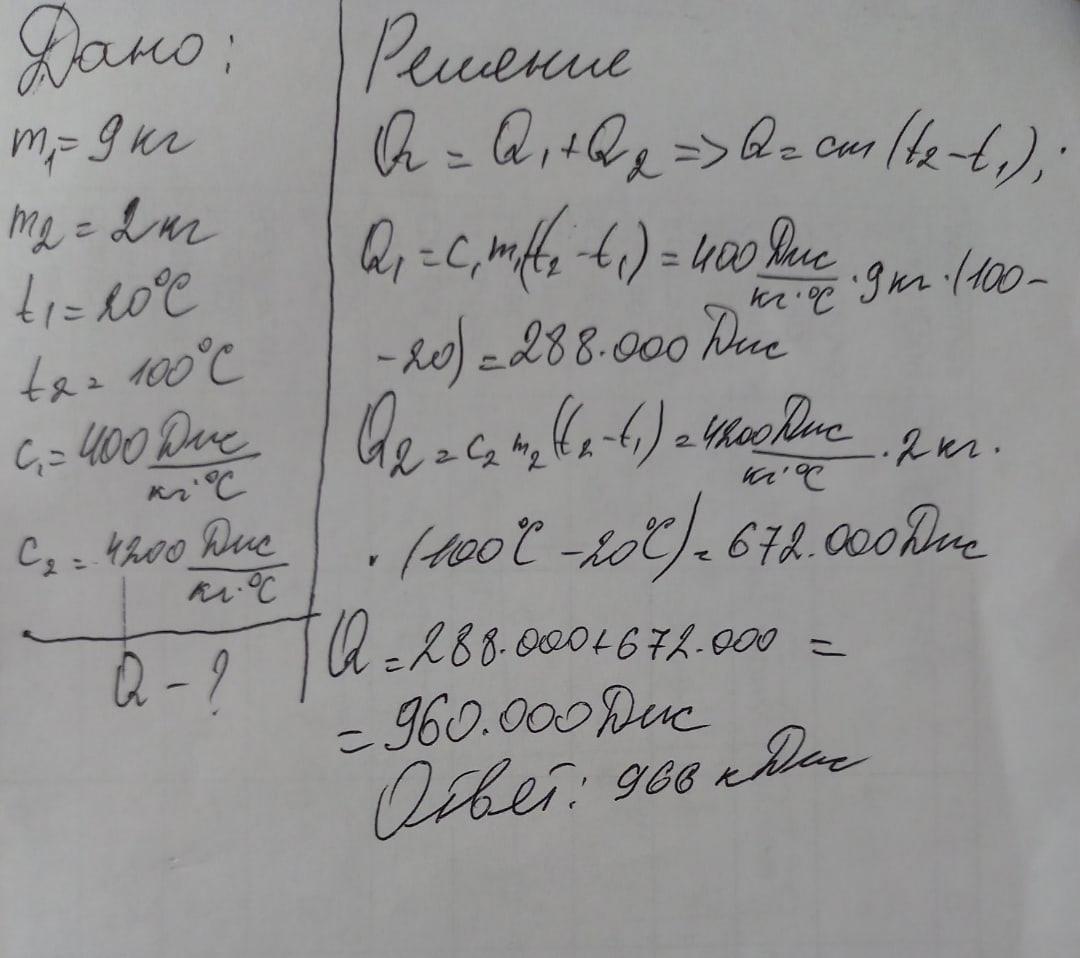 Дано:
m₁=9 кг
m₂=2 кг
t₁=20°C
t₂=100°C
c₁=400 Дж/кг·°C
c₂=4200 Дж/кг·°C
Q-?
Решение
Q=Q₁+Q₂=>Q=cm(t₂-t₁);
Q₁=c₁m₁(t₂-t₁)=400 Дж/кг·°C·9кг·(100-
-20)=288.000 Дж
Q₂=c₂m₂(t₂-t₁)=4200 Дж/кг·°C·2 кг·
·(100°C-20°C)=672.000 Дж
Q=288.000+672.000=
=960.000 Дж
Ответ: 960 кДж